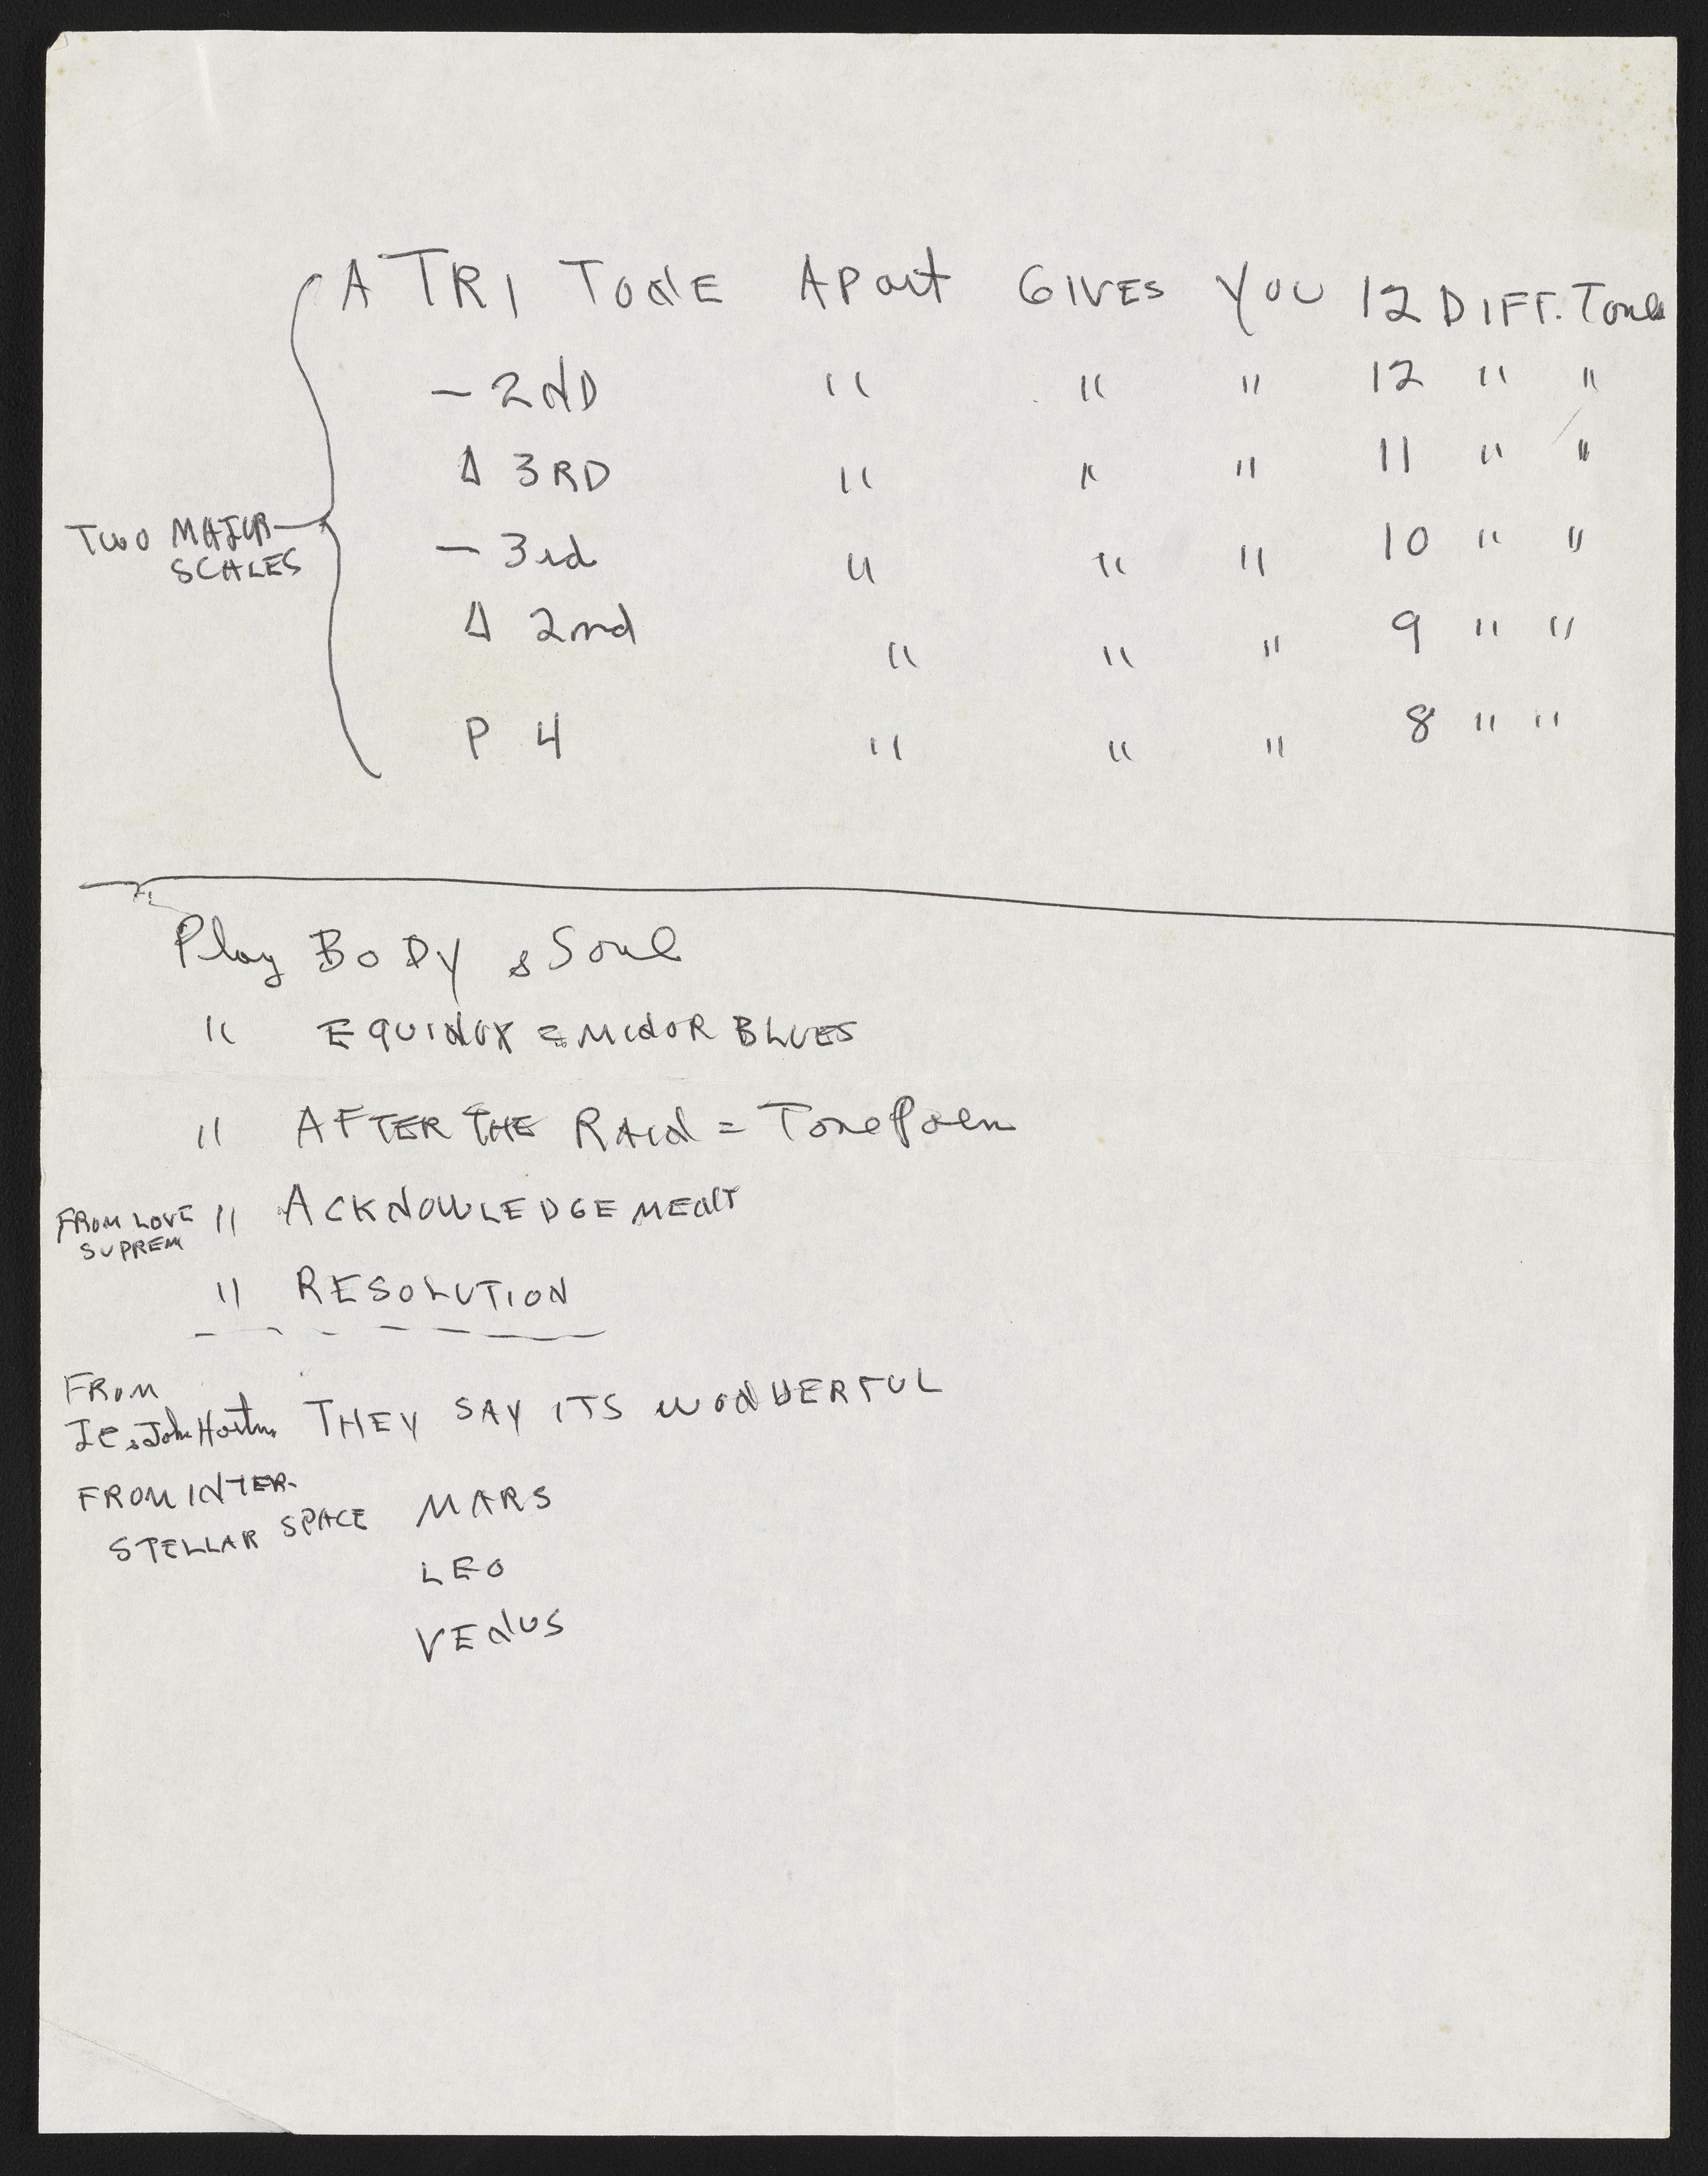 A TRI TONE APart GIVES YOU 12 DIFF. Tones
– 2ND " " " 12 " "
Δ 3RD " " " 11 " "
TWO MAJOR SCALES
– 3rd " " " 10 " "
Δ 2nd " " " 9 " "
P 4 " " " 8 " "
Play BODY & Soul
" EQUINOX = MINOR BLUES
" AFTER THE RAIN = Tone Poem
FROM LOVE SUPREM " ACKNOWLEDGEMENT
" RESOLUTION
FROM
JC & John Hartm THEY SAY ITS WONDERFUL
FROM INTER-
STELLAR SPACE MARS
LEO
VENUS